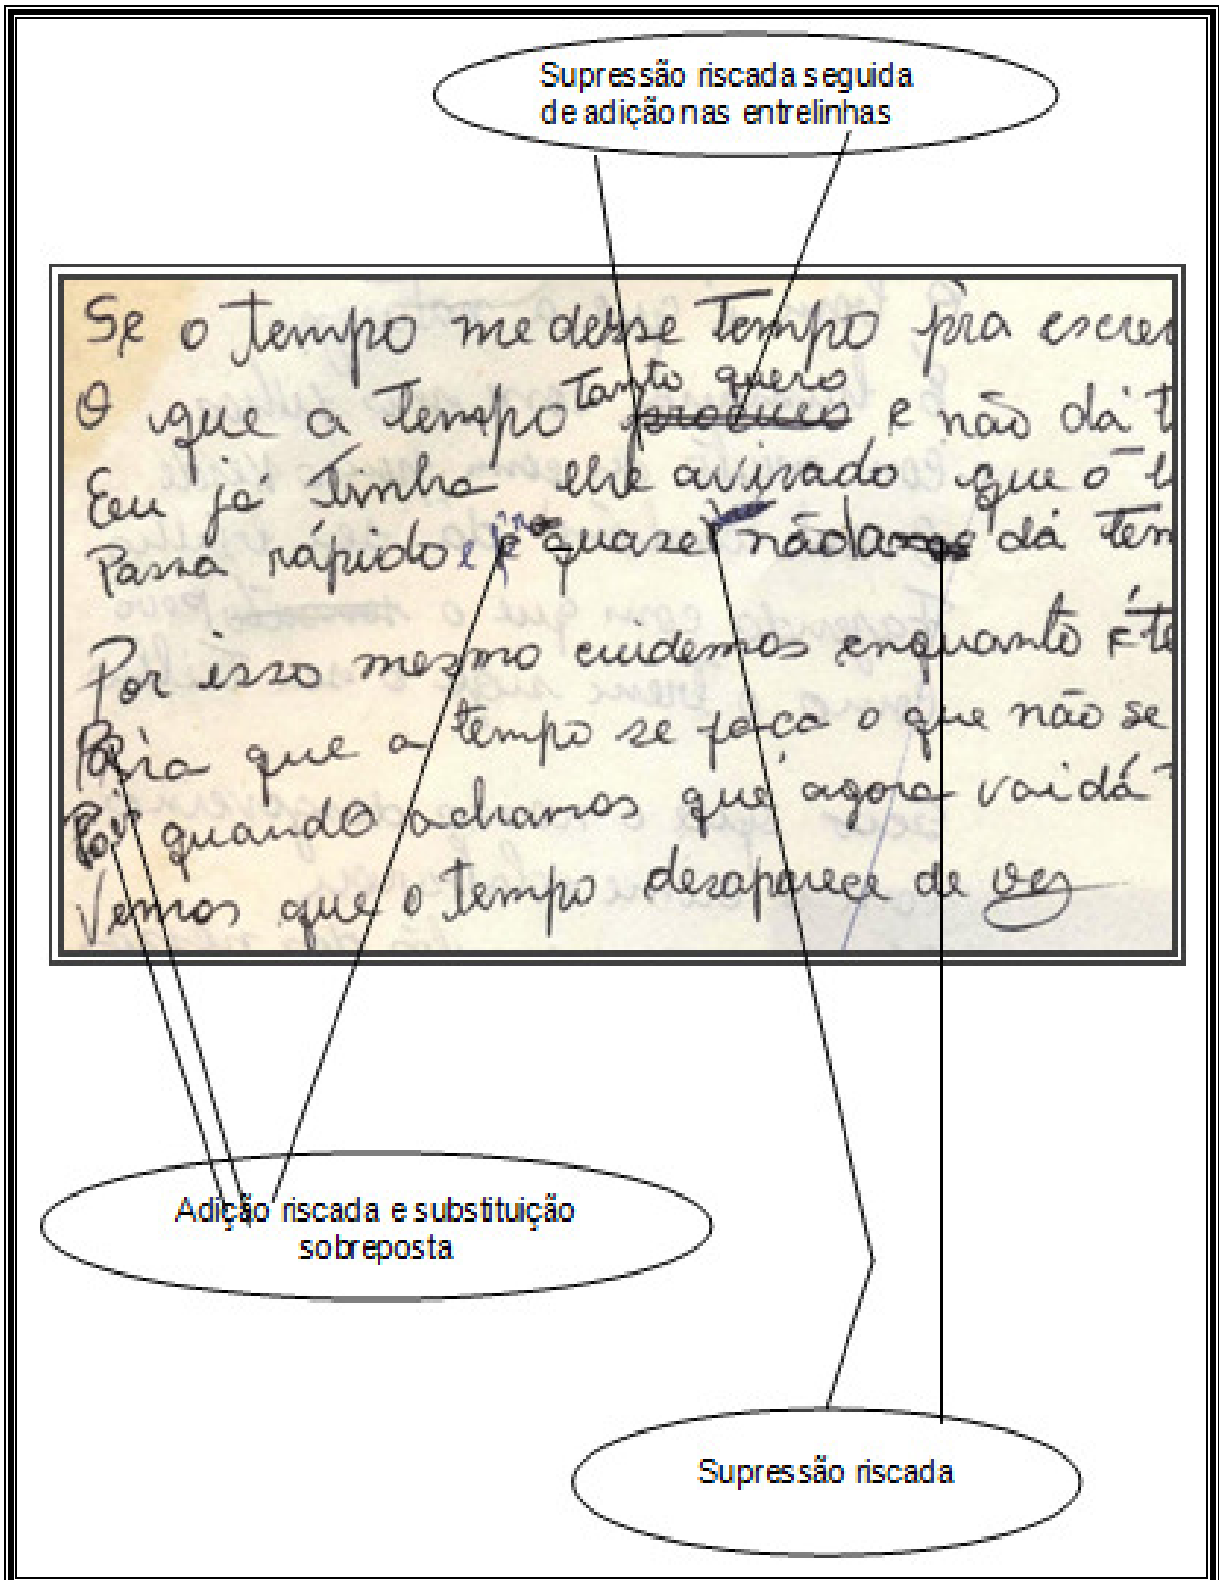 Supressão riscada seguida
de adição nas entrelinhas
Se o tempo me desse tempo pra escrev
Tanto quero
O que a tempo procuro e não dá t
Eu já tinha lhe avisado que o t
Passa rápido e quase não dá tem
Por isso mesmo cuidemos enquanto é te
Pra que a tempo se faça o que não se
Pois quando achamos que agora vai dá
Vemos que o tempo desaparece de vez
Adição riscada e substituição
sobreposta
Supressão riscada